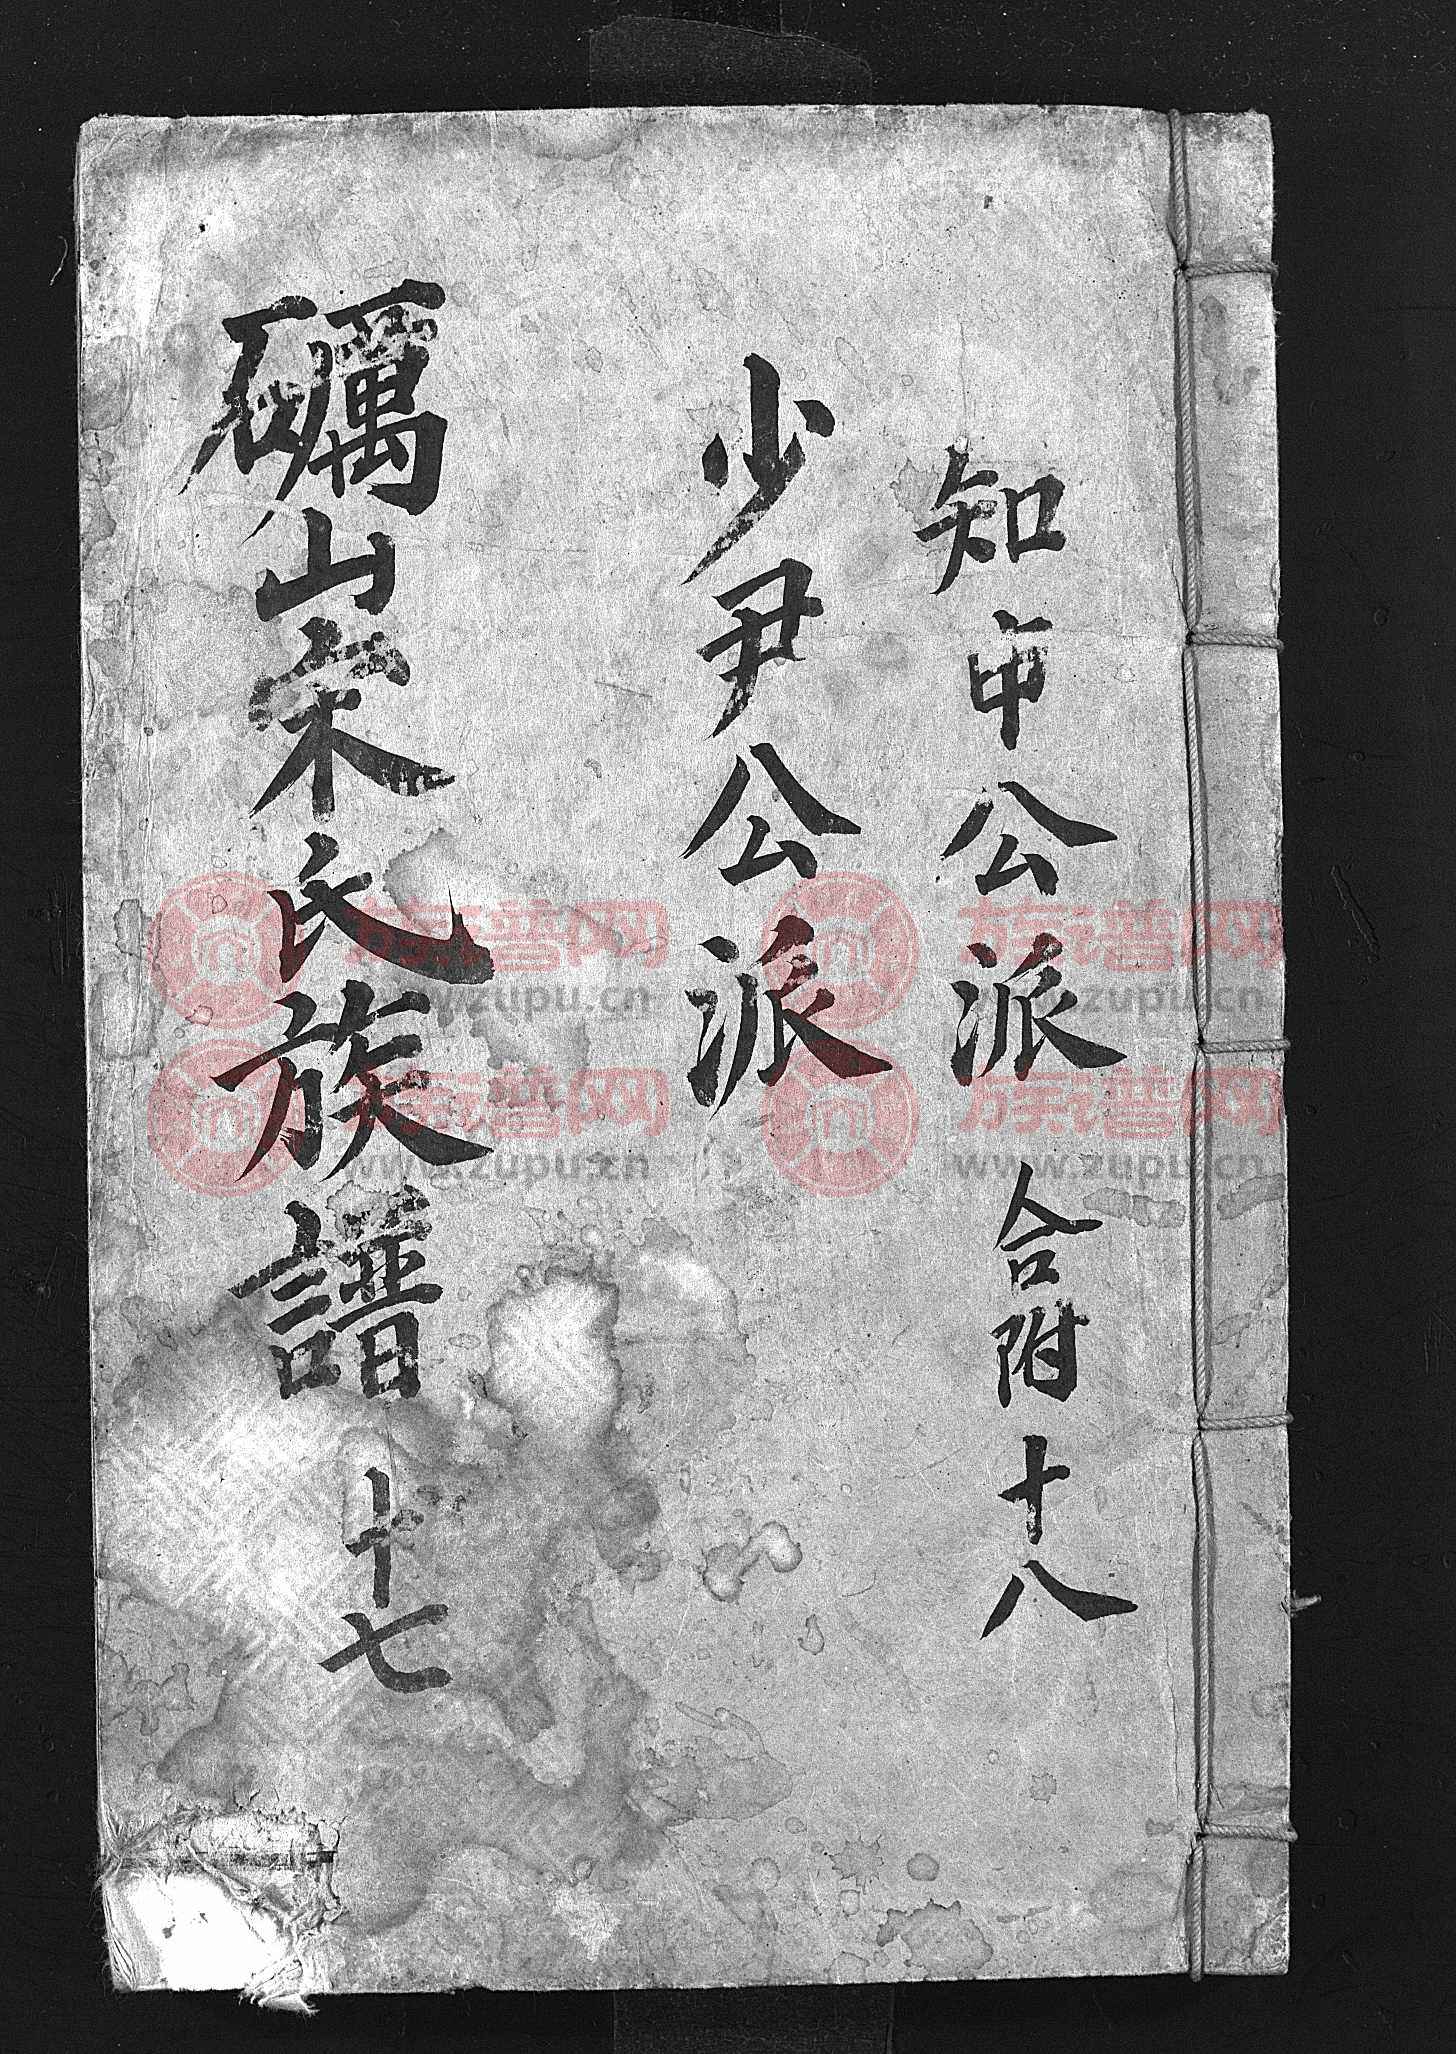 知申公派 合附 十八
少尹公派
礪山宋氏族譜 十七
族谱网
www.zupu.cn
族谱网
www.zupu.cn
族谱网
www.zupu.cn
族谱网
www.zupu.cn